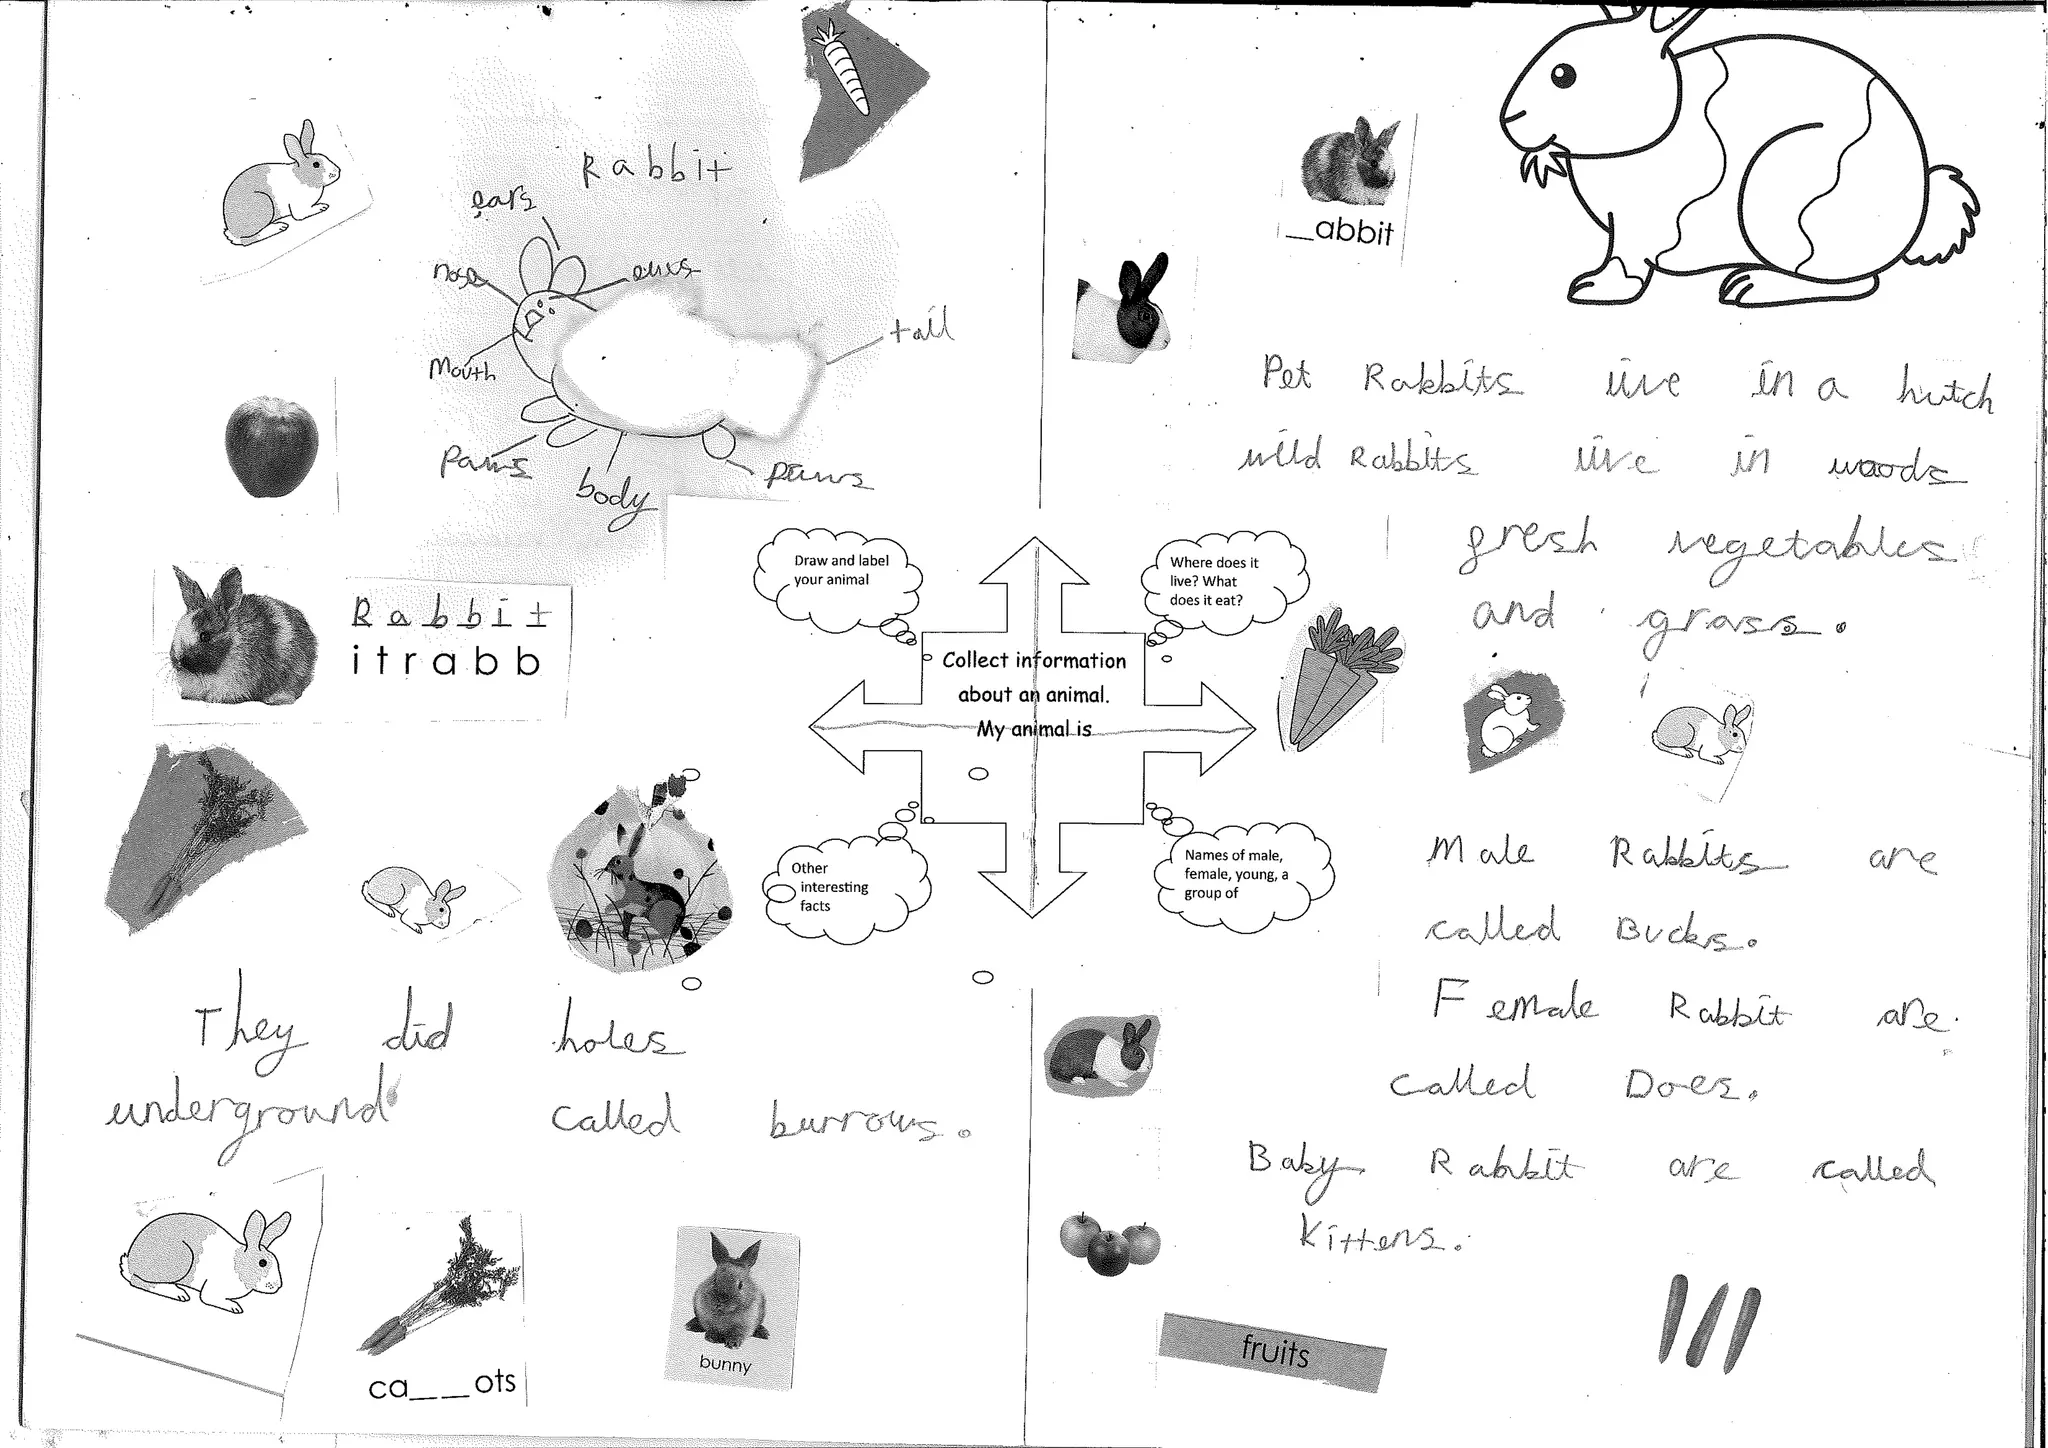 Rabbit
ears
nose
eyes
Mouth
tail
paws
body
paws
Rabbit
itrabb
Draw and label
your animal
Where does it
live? What
does it eat?
Collect information
about an animal.
My animal is
Other
interesting
facts
Names of male,
female, young, a
group of
They did holes
underground called burrows.
ca__ots
bunny
_abbit
Pet Rabbits live in a hutch
wild Rabbits live in woods
fresh vegetables
and grass.
Male Rabbits are
called Bucks.
Female Rabbit are
called Does.
Baby Rabbit are called
Kittens.
fruits